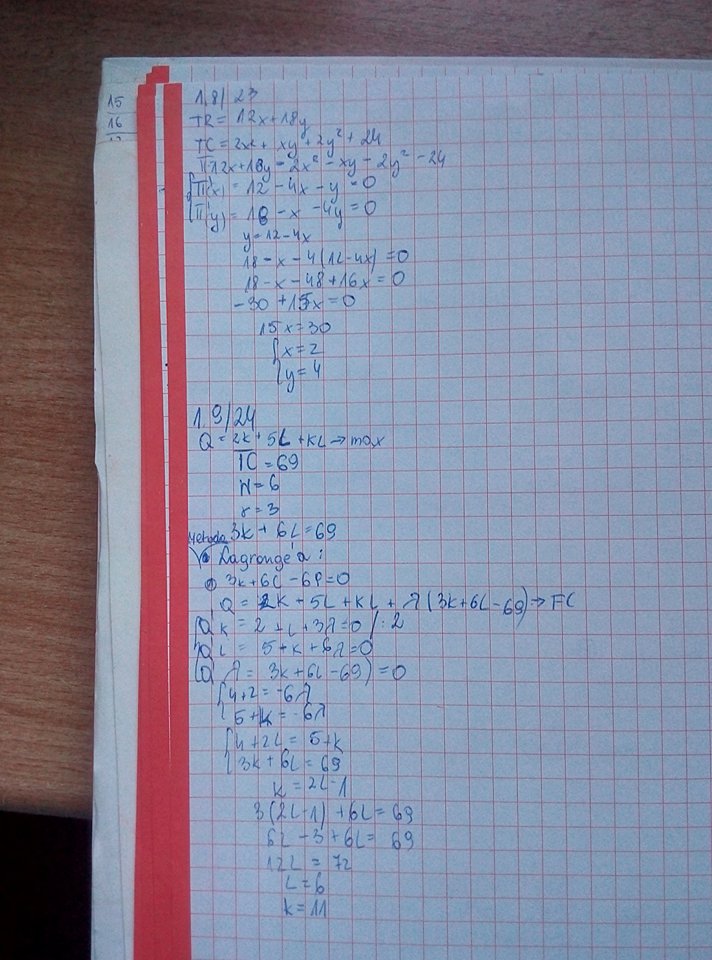 15
16
1.8/23
TR = 12x+18y
TC = 2x²+ xy + 2y² + 24
Π 12x+18y - 2x² - xy - 2y² - 24
Π'(x) = 12 - 4x - y = 0
Π'(y) = 18 - x - 4y = 0
y = 12 - 4x
18 - x - 4(12 - 4x) = 0
18 - x - 48 + 16x = 0
-30 + 15x = 0
15x = 30
x = 2
y = 4
1.9/24
Q = 2K + 5L + KL → max
TC = 69
W = 6
r = 3
3K + 6L = 69
Metoda
Lagrange'a :
3K + 6L - 69 = 0
Q = 2K + 5L + KL + λ (3K + 6L - 69) → FC
Q'K = 2 + L + 3λ = 0 / · 2
Q'L = 5 + K + 6λ = 0
Q'λ = 3K + 6L - 69) = 0
4 + 2 = -6λ
5 + K = -6λ
4 + 2L = 5 + K
3K + 6L = 69
K = 2L - 1
3(2L - 1) + 6L = 69
6L - 3 + 6L = 69
12L = 72
L = 6
K = 11